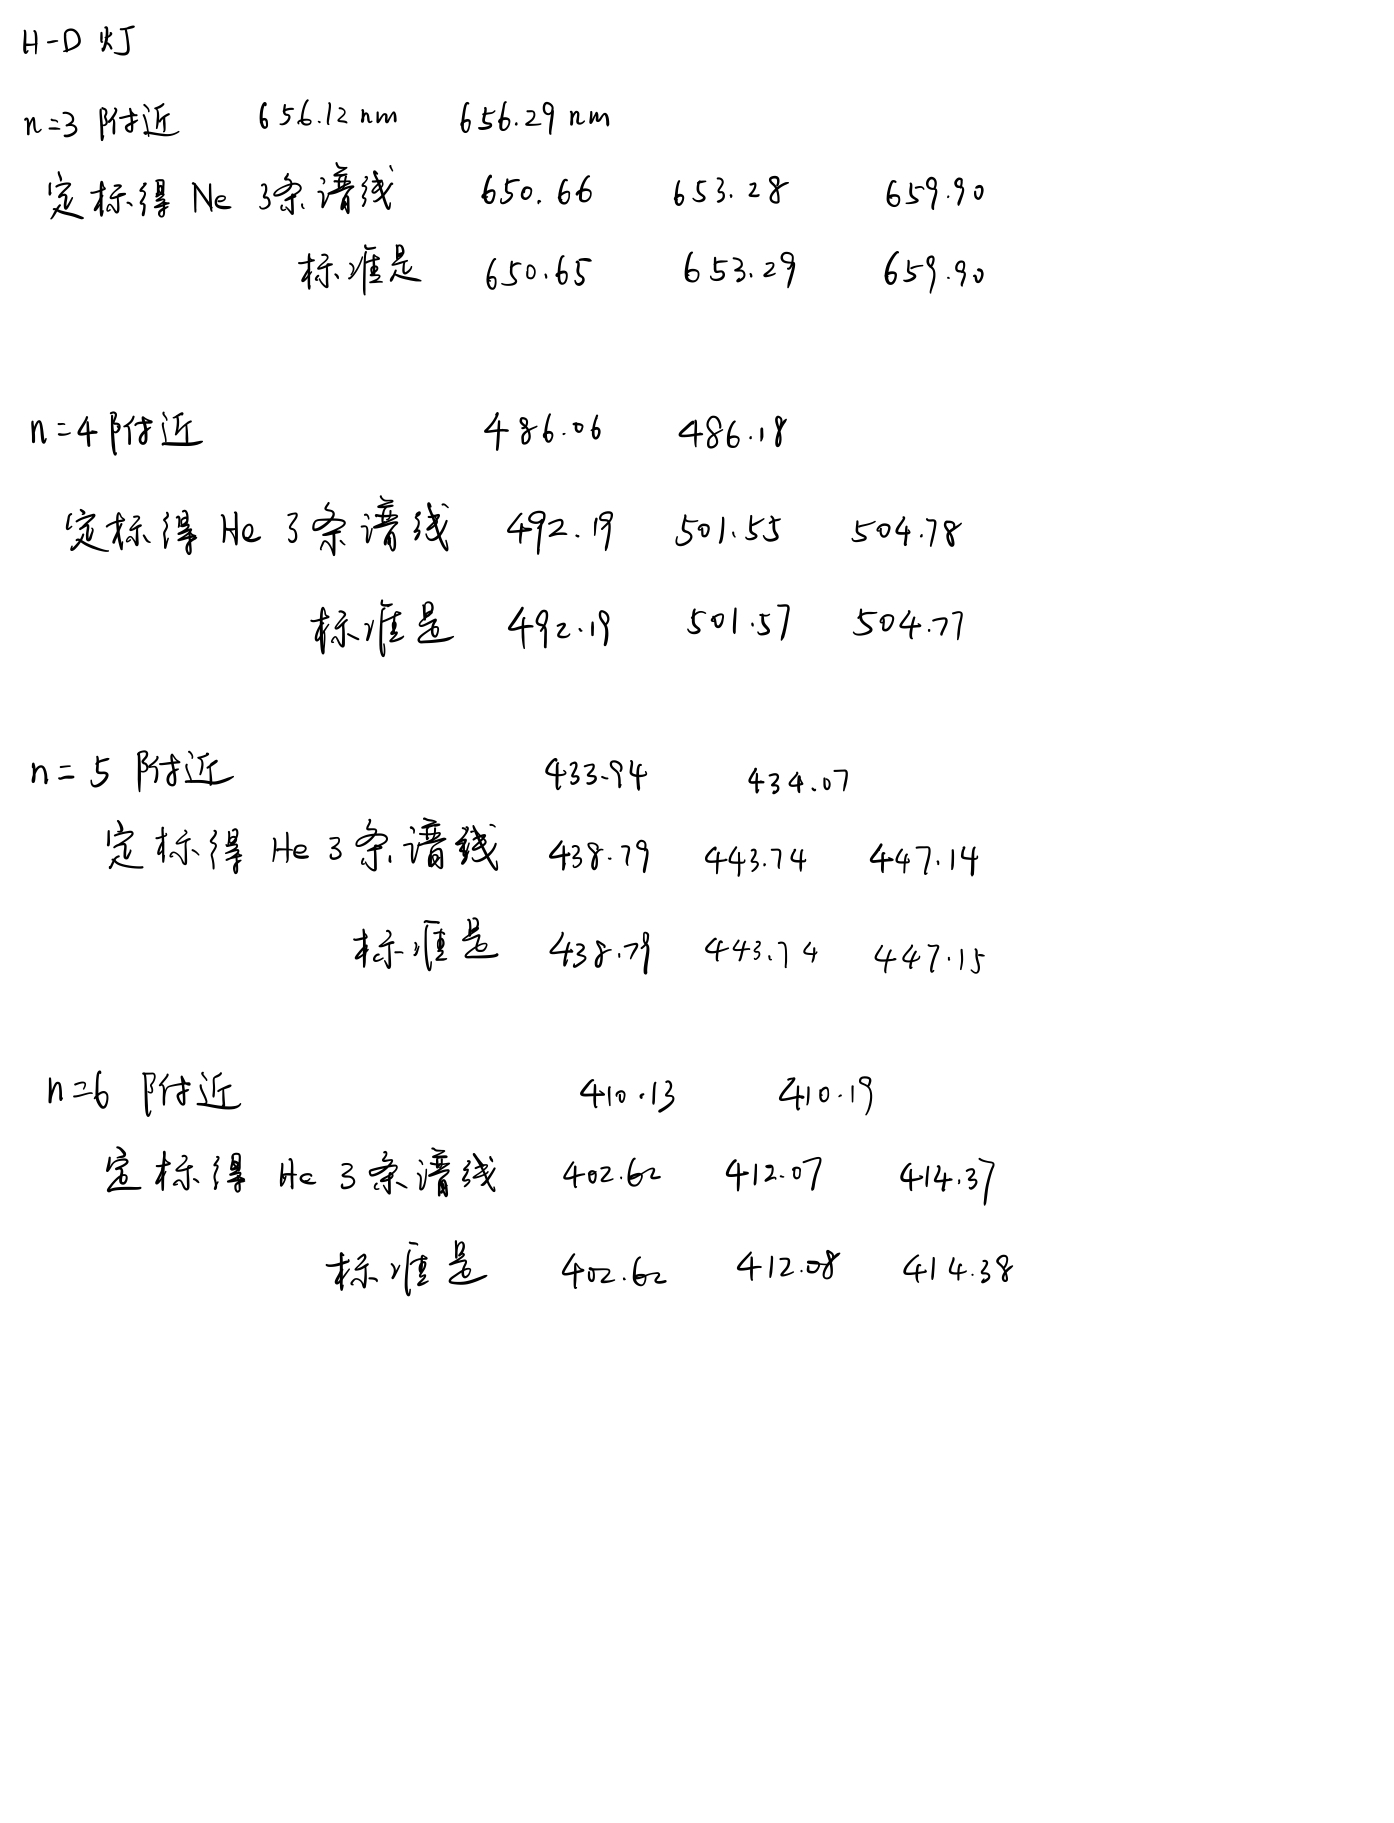 H-D 灯
n=3 附近 656.12 nm 656.29 nm
定标得 Ne 3条谱线 650.66 653.28 659.90
标准是 650.65 653.29 659.90
n=4 附近 486.06 486.18
定标得 He 3条谱线 492.19 501.55 504.78
标准是 492.19 501.57 504.77
n=5 附近 433.94 434.07
定标得 He 3条谱线 438.79 443.74 447.14
标准是 438.79 443.74 447.15
n=6 附近 410.13 410.19
定标得 He 3条谱线 402.62 412.07 414.37
标准是 402.62 412.08 414.38